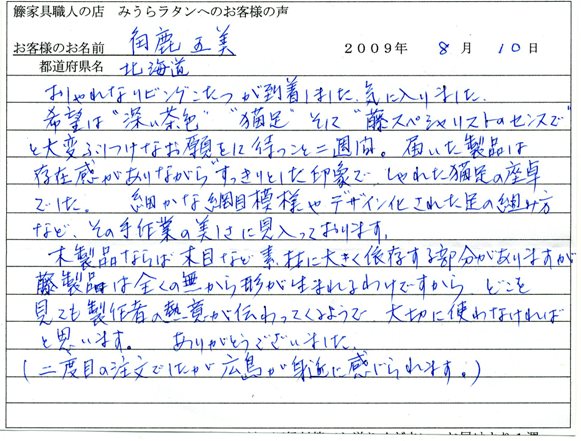 籐家具職人の店　みうらラタンへのお客様の声
お客様のお名前　角鹿五美　2009年　8月　10日
都道府県名　北海道
おしゃれなリビングこたつが到着しました、気に入りました。
希望は“深い茶色”　“猫足”　そして“藤スペシャリストのセンスで”
と大変ぶしつけなお願をして待つこと二週間。届いた製品は
存在感がありながら“すっきりとした印象で　しゃれた猫足の座卓
でした。　細かな網目模様や　デザイン化された足の組み方
など、その手作業の美しさに見入っております。
木製品ならば　木目など素材に大きく依存する部分がありますが
藤製品は全くの無から形が生まれるわけですから、どこを
見ても製作者の熱意が伝わってくるようで　大切に使わなければ
と思います。　ありがとうございました。
(二度目の注文でしたが広島が身近に感じられます。)